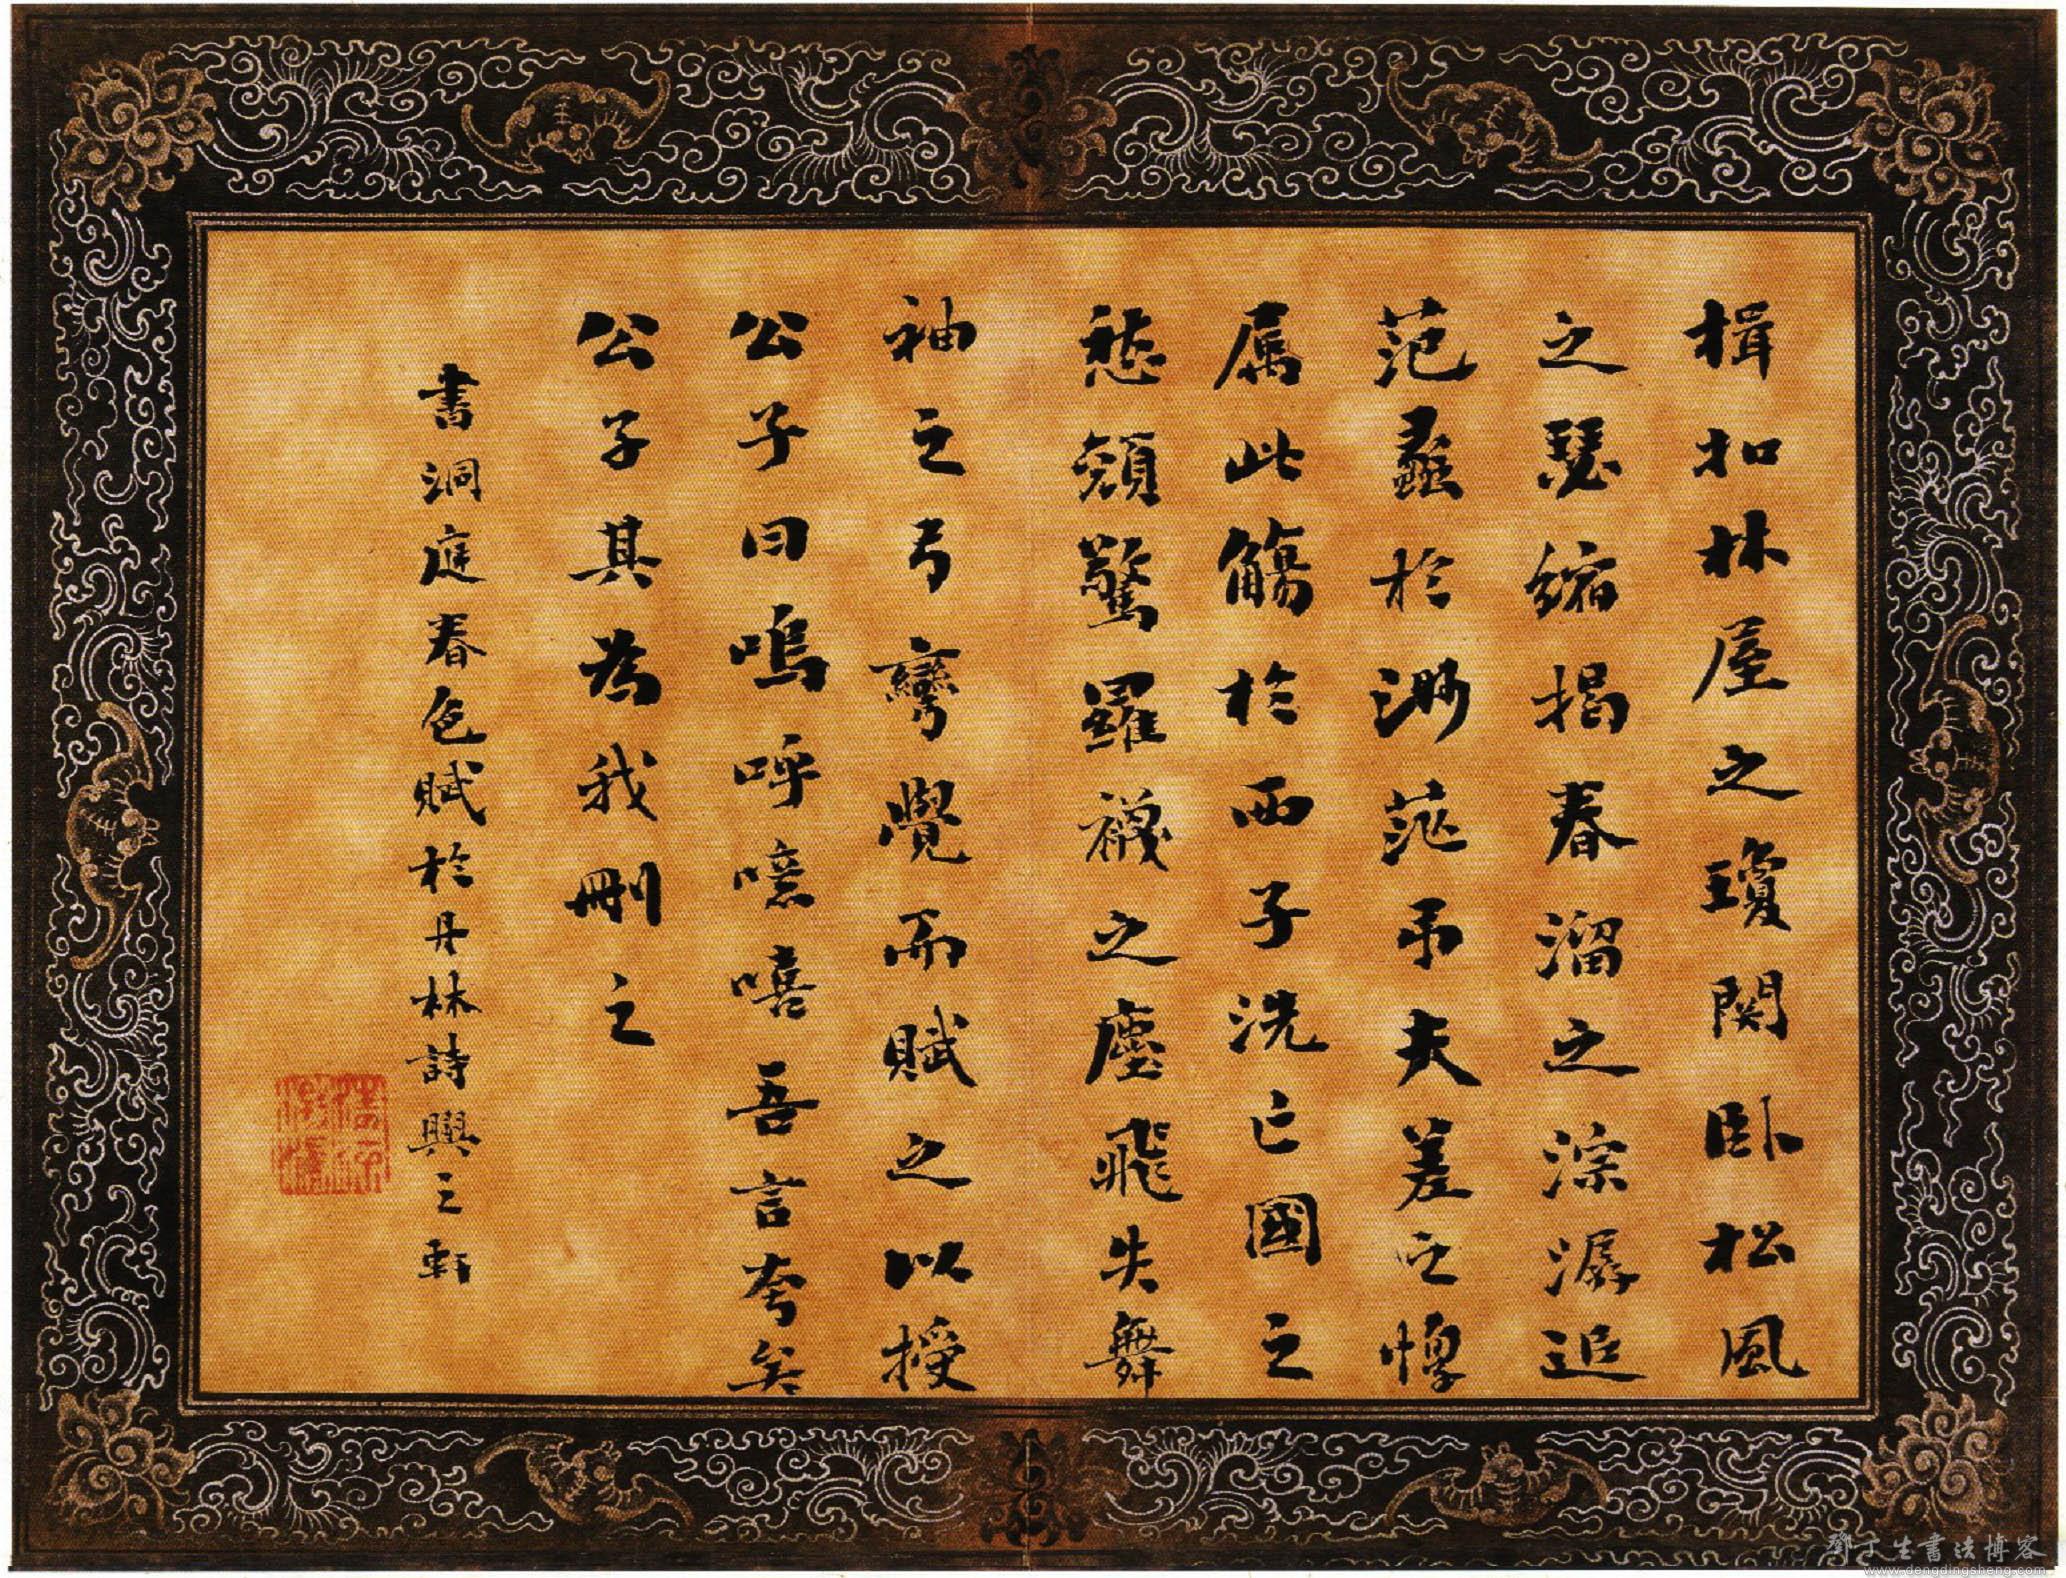 楫扣林屋之瓊関卧松風
之瑟縮揭春溜之淙潺追
范蠡於渺茫吊夫差之惸
属此觴於西子洗亡國之
愁顔驚羅襪之塵飛失舞
袖之弓彎覺而賦之以授
公子曰嗚呼噫嘻吾言夸矣
公子其為我刪之
書洞庭春色賦於丹林詩興之軒
鄧丁生書法博客
www.dengdingsheng.com